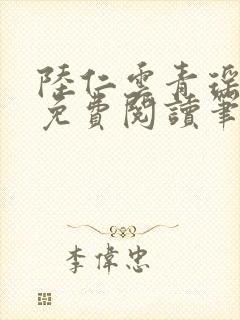 陸仁雲青瑤
免費閱讀筆
李偉忠